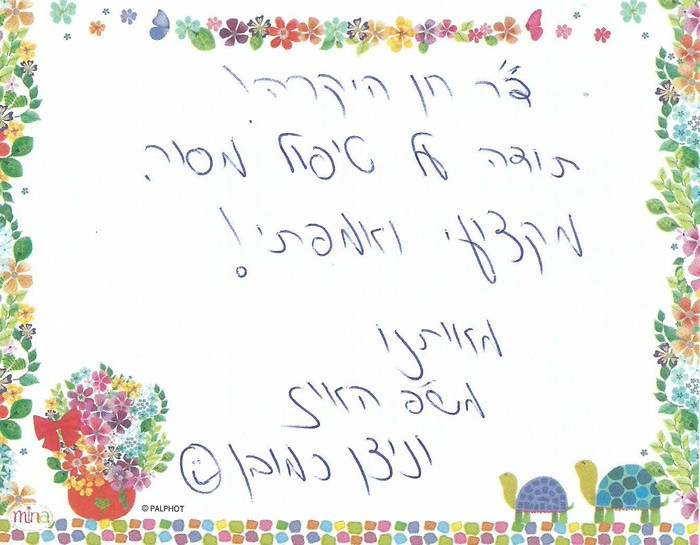 ד"ר חן היקרה!
תודה על טיפול מסור,
מקצועי ואמפתי!
מאיתנו
מש'
וניצן כמובן
mina
© PALPHOT